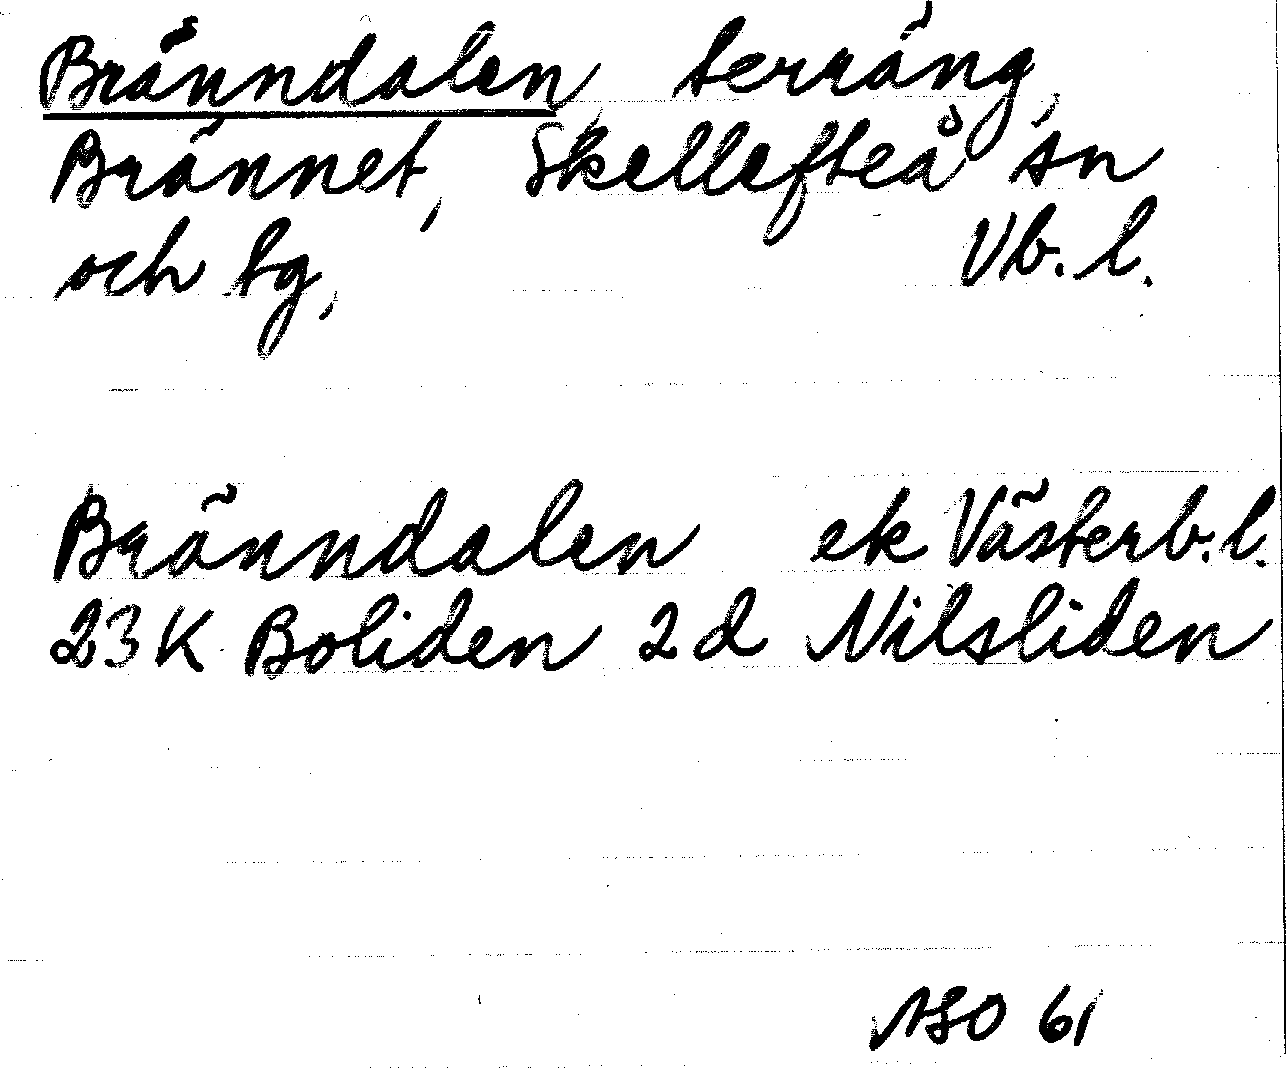 Bränndalen terräng,
Brännet, Skellefteå sn
och tg, Vb. l.
Bränndalen ek Västerb. l.
23 K Boliden 2 d Nilsliden
ASO 61